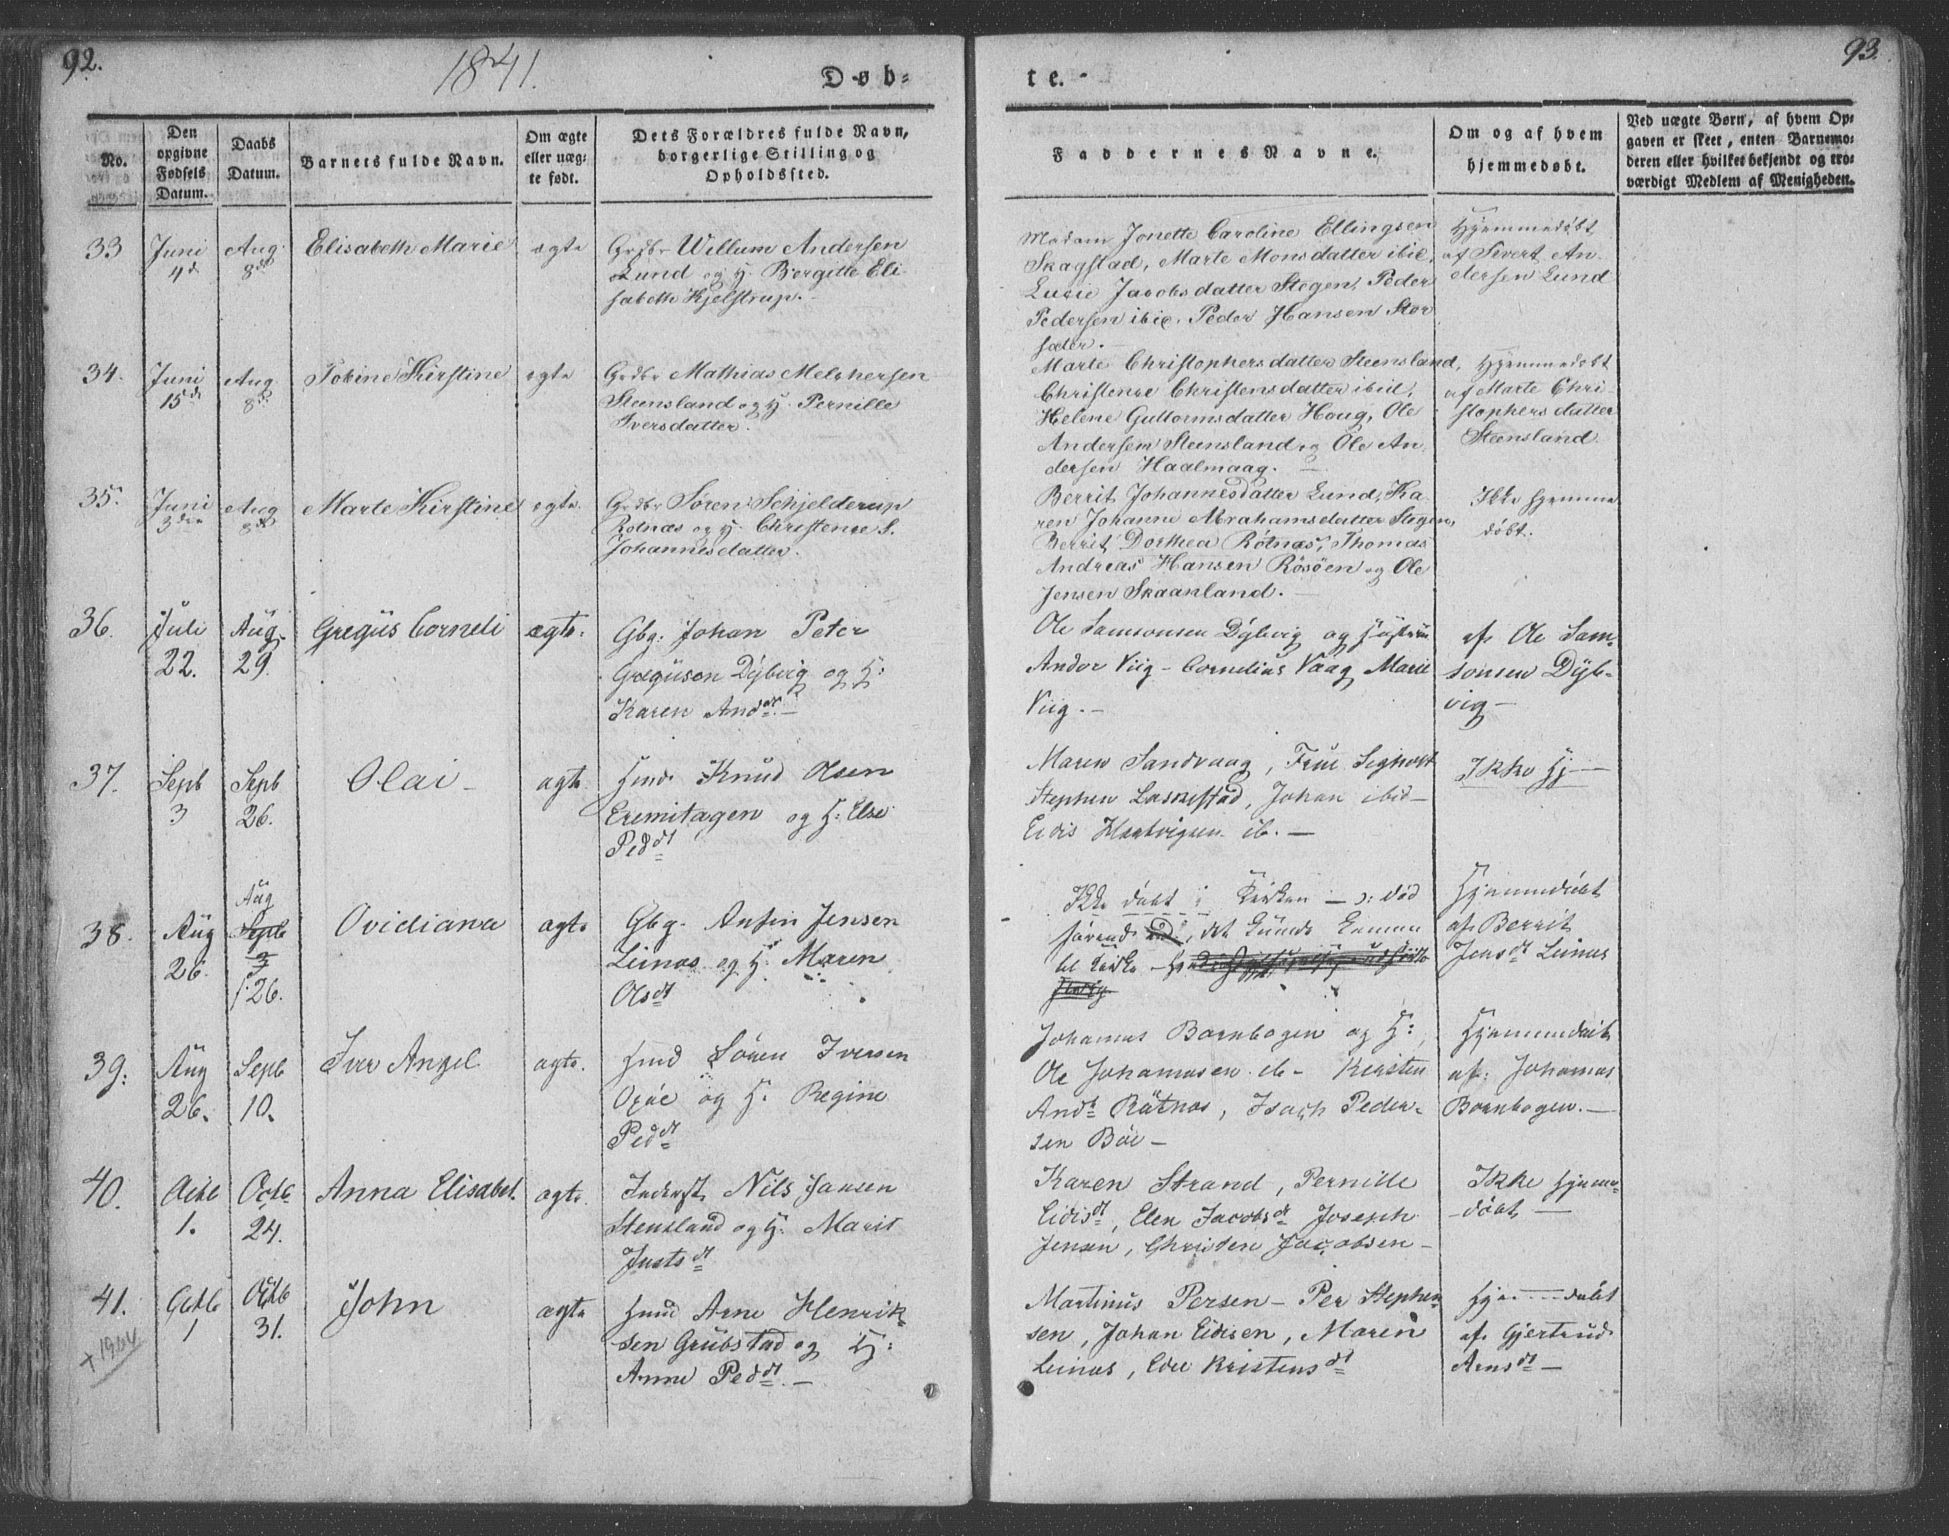 92.
1841.
Døb-
te.
93.
No.
Den opgivne Fødsels Datum.
Daabs Datum.
Barnets fulde Navn.
Om ægte eller uæg- te født.
Dets Forældres fulde Navn, borgerlige Stilling og Opholdssted.
Faddernes Navne.
Om og af hvem hjemmedøbt.
Ved uægte Børn, af hvem Op-
gaven er skeet, enten Barnemo-
deren eller hvilket bekjendt og tro-
værdigt Medlem af Menigheden.
33 Juni 4d Aug. 8de Elisabeth Marie ægte
Grdbr Willum Andersen
Lund og H. Borgitte Eli
sabeth Hjelstrup.
Madam Jonette Caroline Ellingsen
Skagstad, Marte Monsdatter ibid,
Lucie Jacobsdatter Stegen, Peder
Pedersen ibid. Peder Hansen Stor
sæter.
Hjemmedöbt
af Sivert An
dersen Lund
34. Juni 15de Aug 8de Tobine Kirstine ægte
Grdbr Mathias Melchersen
Steensland og H. Pernille
Iversdatter.
Marte Christophersdatter Steensland,
Christense Christensdatter ibid,
Helene Guttormsdatter Houg, Ole
Andersen Steensland og Ole An
dersen Haalmaag.
Hjemmedobt
af Marte Chri
stophersdatter
Steensland
35. Juni 3die Aug 8de Marte Kirstine ægte
Grdbr Søren Schjelderup
Rotnæs og H. Christense S.
Johannesdatter.
Berrit Johannesdatter Lund, Ka
ren Johanne Abrahamsdatter Stegen,
Berrit Dorthea Rötnæs, Thomas
Andreas Hansen Rösöen og Ole
Jensen Skaanland.
Ikke hjemme
döbt.
36. Juli 22. Aug. 29. Gregus Corneli ægte.
Gbg: Johan Peter
Gregusen Dybvig og H:
Karen Anddt.
Ole Samsonsen Dybvig og Hustrue
Andor Viig - Cornelius Vaag Marie
Viig.
af Ole Sam-
sonsen Dyb-
vig
37. Septb 3 Septb 26. Olai ægte
Hmd. Knud Olsen
Eremitagen og H: Else
Peddt
Maren Sandvaag, Frue Sigholt
Stephen Laskestad, Johan ibid
Eidis Hartvigsen ib.
Ikke Hj
38. Aug 26. Aug Septb 3 26. Ovidiana ægte
Gbg. Anfin Jensen
Leinæs og H. Maren
Olsdt
Ikke döbt i Kirken - ɔ: död
förend det kunde komme
til Kirke
Hjemmedöbt
af Berrit
Jensdt Leinæs
39. Aug 26. Septb 10. Iver Angel ægte.
Hmd Sören Iversen
og H. Regine
Peddt
Johannes Bornbogen og H:
Ole Johannesen ib - Kirsten
Anddt Rötnæs, Isach Peder-
sen Böe
Hjemmedöbt
af: Johannes
Bornbogen.
40. Octb 1. Octb. 24. Anna Elisabet ægte.
Inderst Nils Jansen
Stensland og H. Marit
Justsdt
Karen Strand, Pernille
Eidisdt, Elen Jacobsdt Joseph
Jensen, Christen Jacobsen
Ikke Hjemme
döbt
41. Octb 1 Octb 31. John ægte
Hmd Arne Henrik-
sen Grübstad og H:
Anne Peddt.
Martinus Persen - Per Stephen
sen, Johan Eidisen, Maren
Leinæs, Kristensdt
Hj döbt
af Gjertrud
Arnsdt
+ 1904